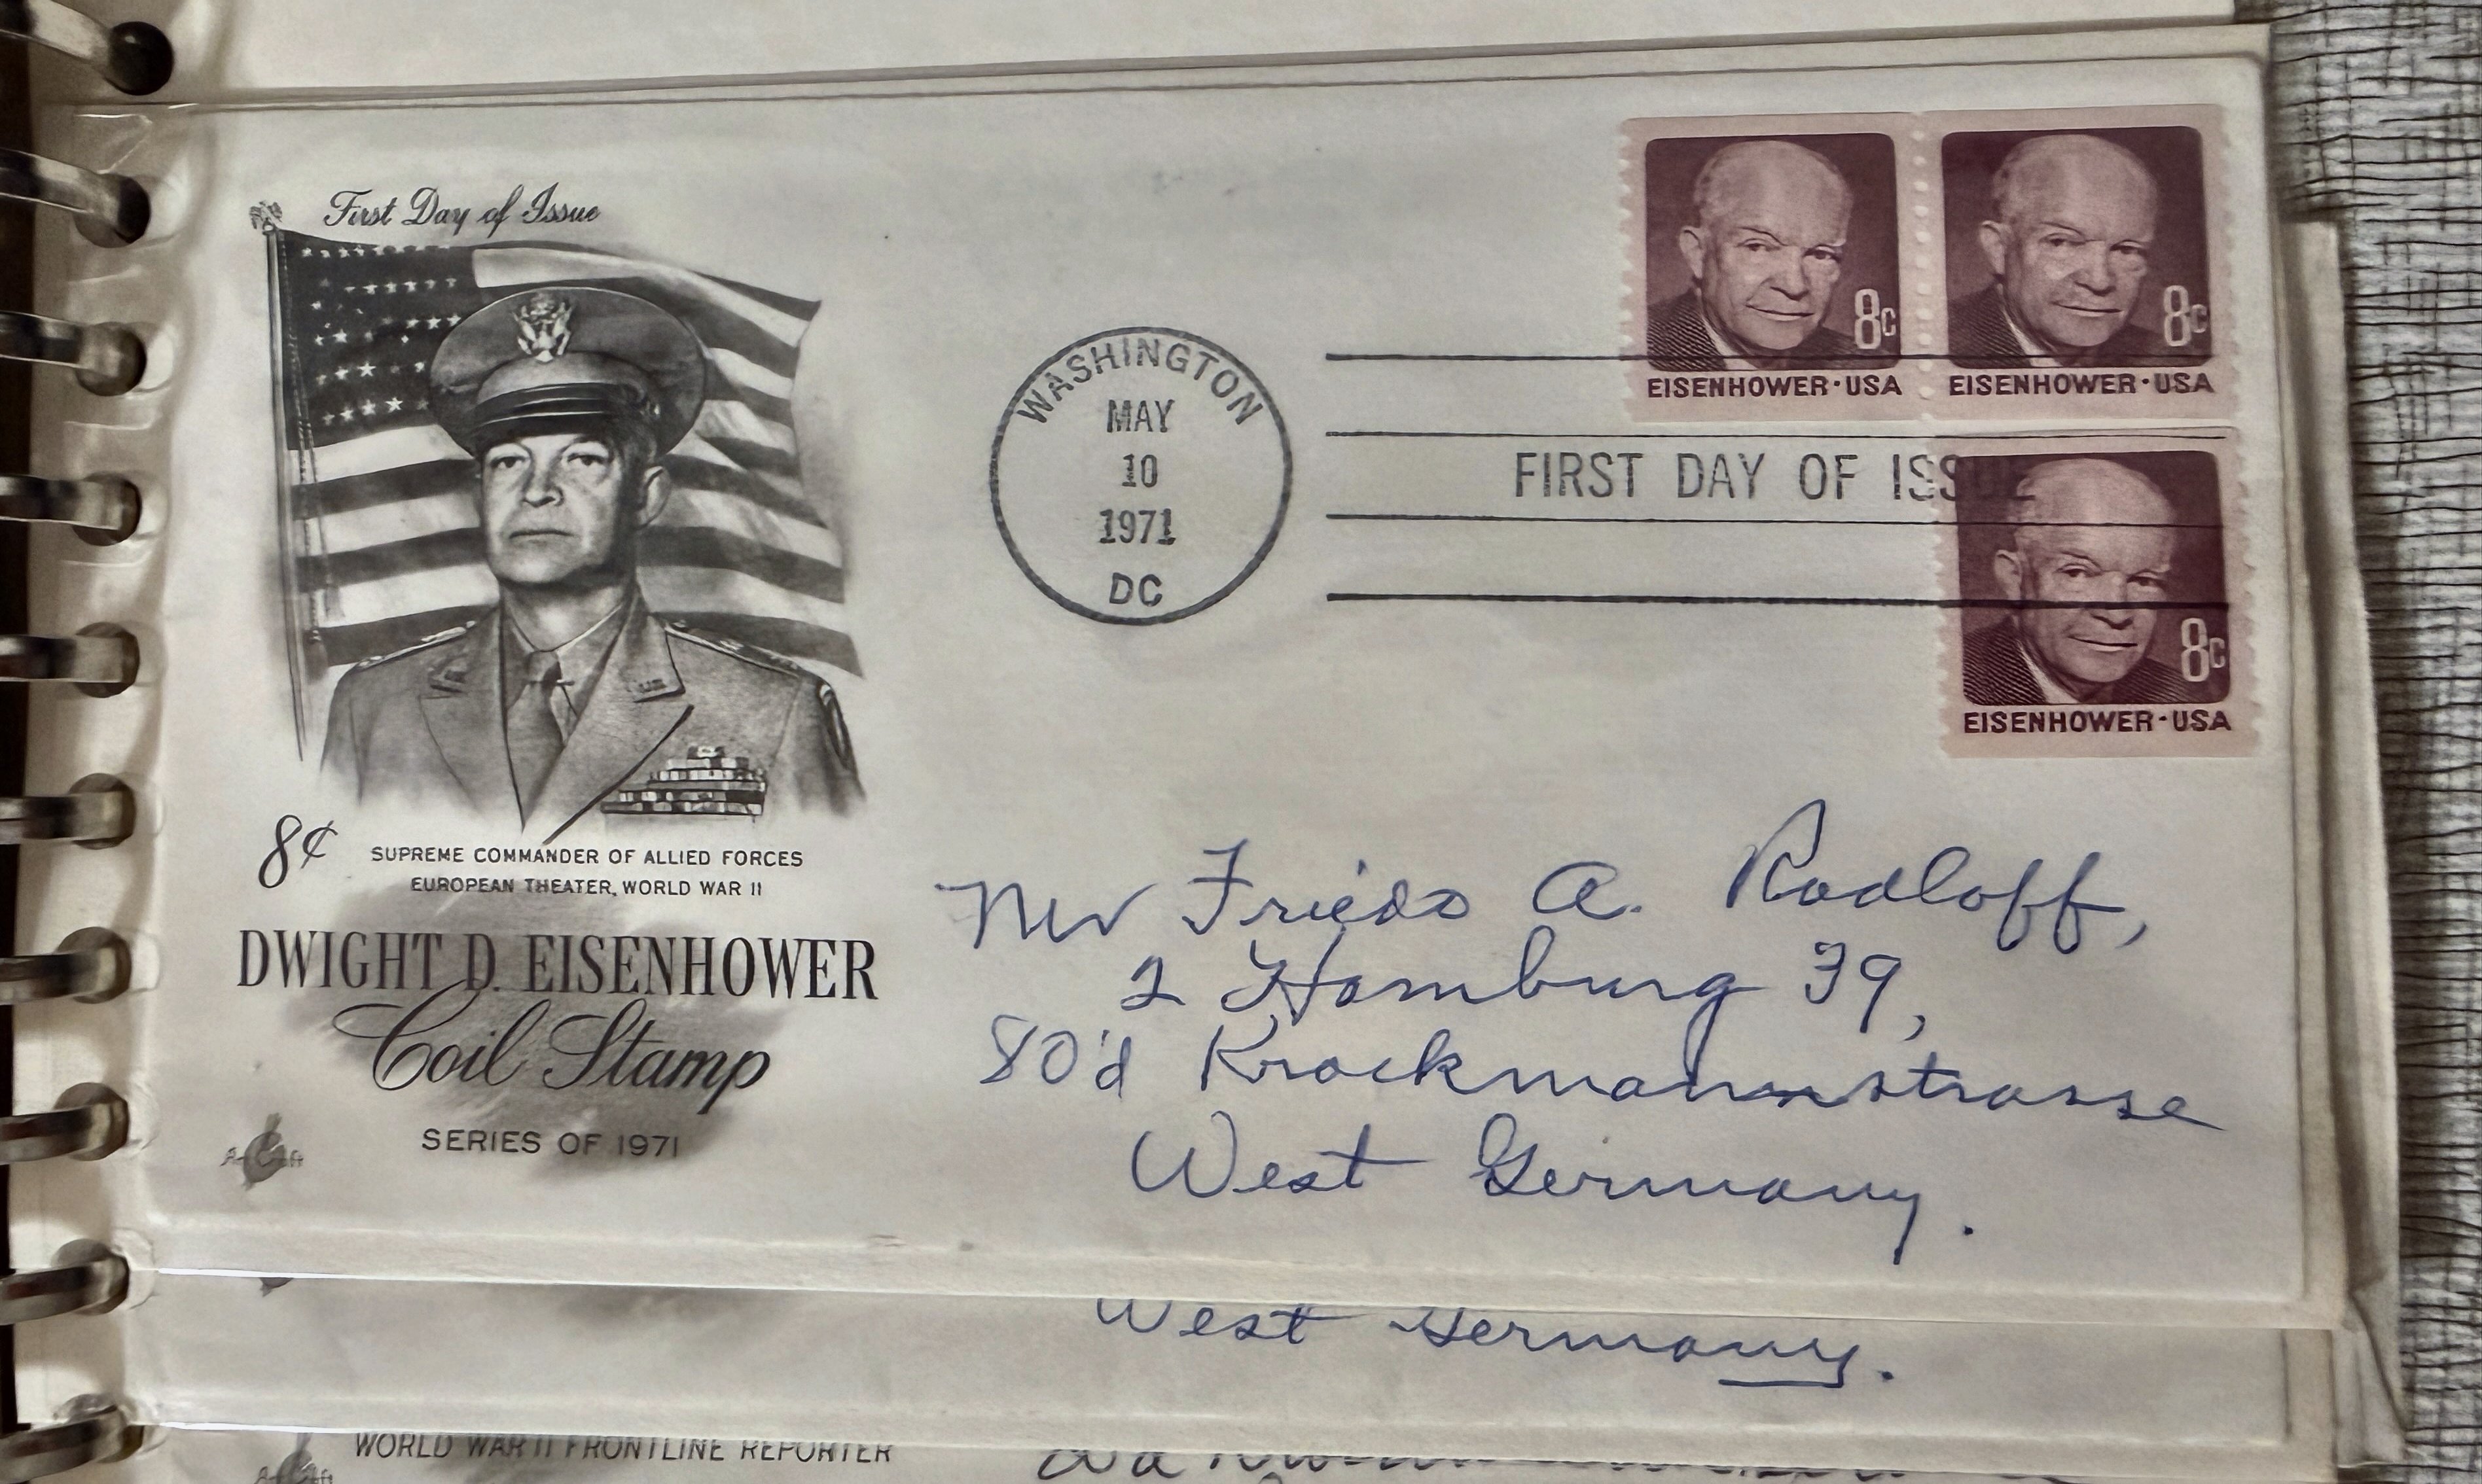 First Day of Issue
8¢
SUPREME COMMANDER OF ALLIED FORCES
EUROPEAN THEATER, WORLD WAR II
DWIGHT D. EISENHOWER
Coil Stamp
SERIES OF 1971
ArtCraft
WASHINGTON
MAY
10
1971
DC
FIRST DAY OF ISSUE
8c
EISENHOWER·USA
8c
EISENHOWER·USA
8c
EISENHOWER·USA
Mr Friedo A. Radloff,
2 Hamburg 39,
80'd Krockmannstrasse
West Germany.
West Germany.
WORLD WAR II FRONTLINE REPORTER
ArtCraft